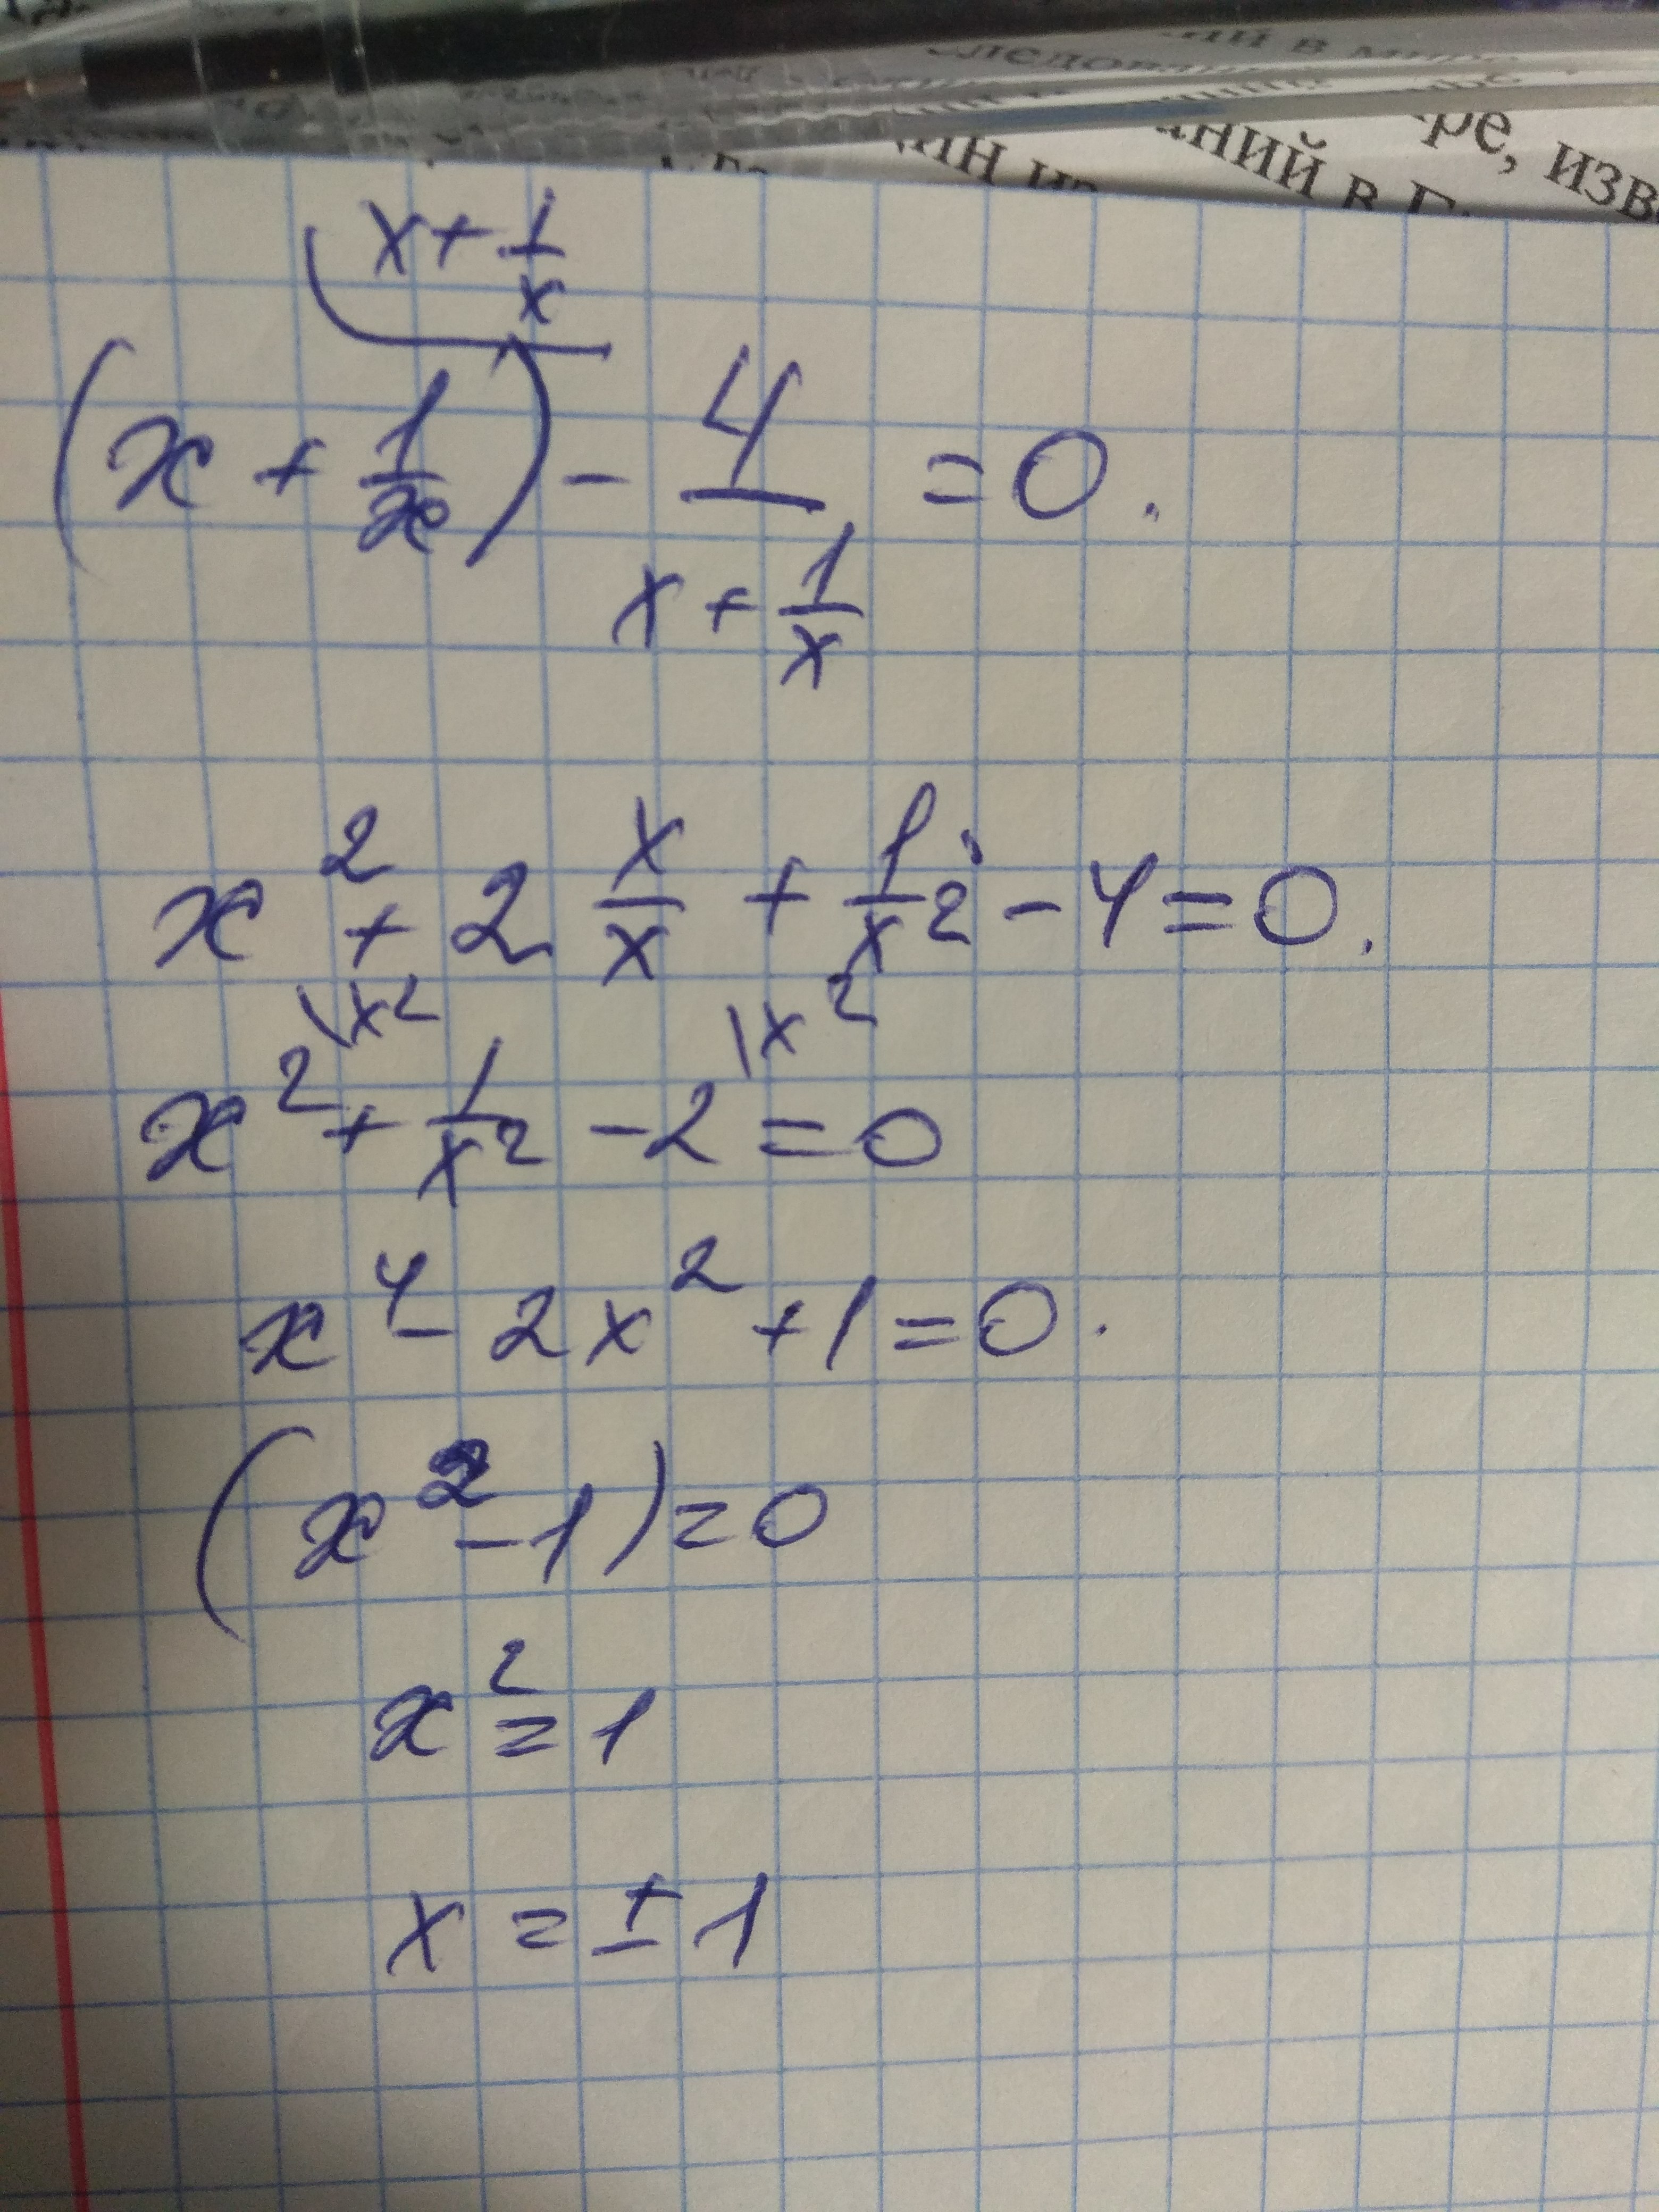 ий в мире
следован
ре, изв
аний в Г
x + 1/x
(x + 1/x) - 4/(x + 1/x) = 0.
x² + 2 x/x + 1/x² - 4 = 0.
\x² \x²
x² + 1/x² - 2 = 0
x⁴ - 2x² + 1 = 0.
(x² - 1) = 0
x² = 1
x = ± 1